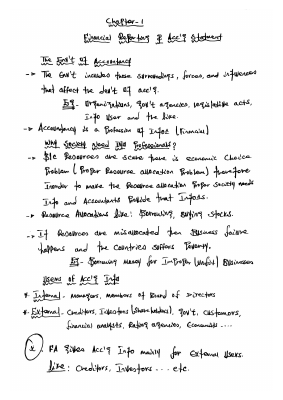 Chapter-1
Financial Reporting & Acc'g Statement
The Env't of Accountancy
-> The Env't includes those surroundings, forces, and influences
that affect the dev't of acc'g.
Eg - Organizations, gov't agencies, legislative acts,
Info User and the like.
-> Accountancy is a Profession of Info: (Financial)
Why Society Need Info Professionals?
- B/c Resources are scarce there is economic Choice
Problem (Proper Resource allocation Problem) therefore
Inorder to make the Resource allocation Proper Society needs
Info and Accountants Provide that Infos.
-> Resource Allocations like: Borrowing, buying stocks.
-> If Resources are misallocated then Business failure
happens and the Countries suffers Poverty.
Eg - Borrowing Money for Improper (Unfit) Businesses
Users of Acc'g Info
* Internal - Managers, Members of Board of Directors
* External - Creditors, Investors (Shareholders), Gov't, Customers,
financial analysts, Rating agencies, Economists ....
* FA gives Acc'g Info mainly for External Users.
like: Creditors, Investors ... etc.